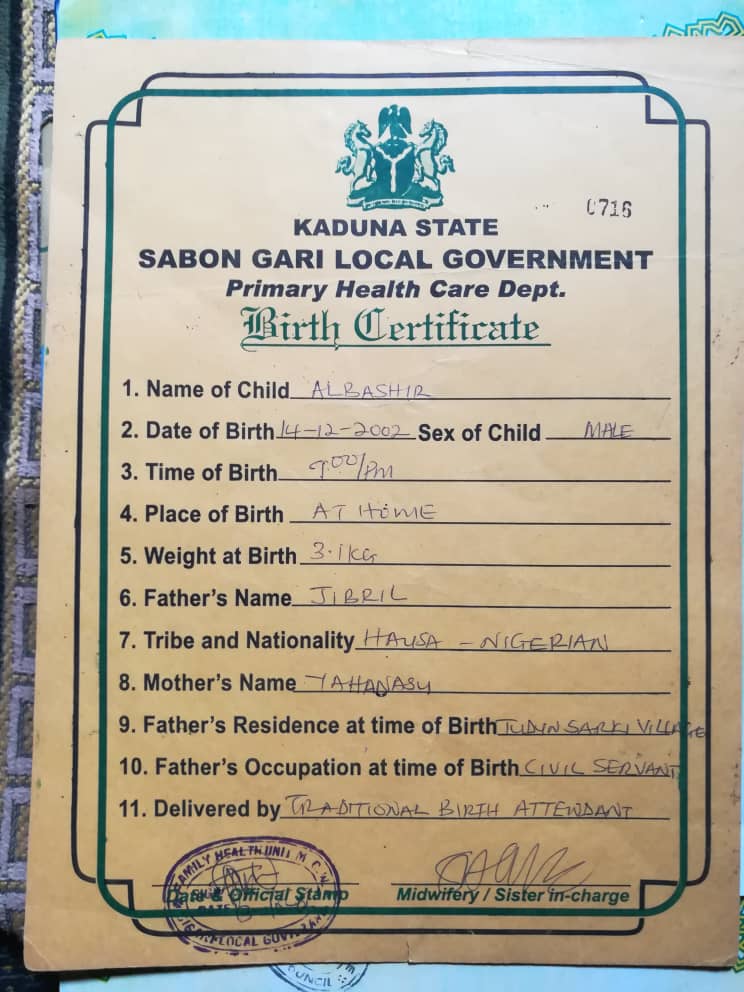 0716
KADUNA STATE
SABON GARI LOCAL GOVERNMENT
Primary Health Care Dept.
Birth Certificate
1. Name of Child ALBASHIR
2. Date of Birth 14-12-2002 Sex of Child MALE
3. Time of Birth 9:00/PM
4. Place of Birth AT HOME
5. Weight at Birth 3.1KG
6. Father's Name JIBRIL
7. Tribe and Nationality HAUSA - NIGERIAN
8. Mother's Name YAHANASU
9. Father's Residence at time of Birth TUDIN SARKI VILLAGE
10. Father's Occupation at time of Birth CIVIL SERVANT
11. Delivered by TRADITIONAL BIRTH ATTENDANT
FAMILY HEALTH UNIT M.C.W.
DATE
LOCAL GOVT
Date & Official Stamp Midwifery / Sister in-charge
UNCIL